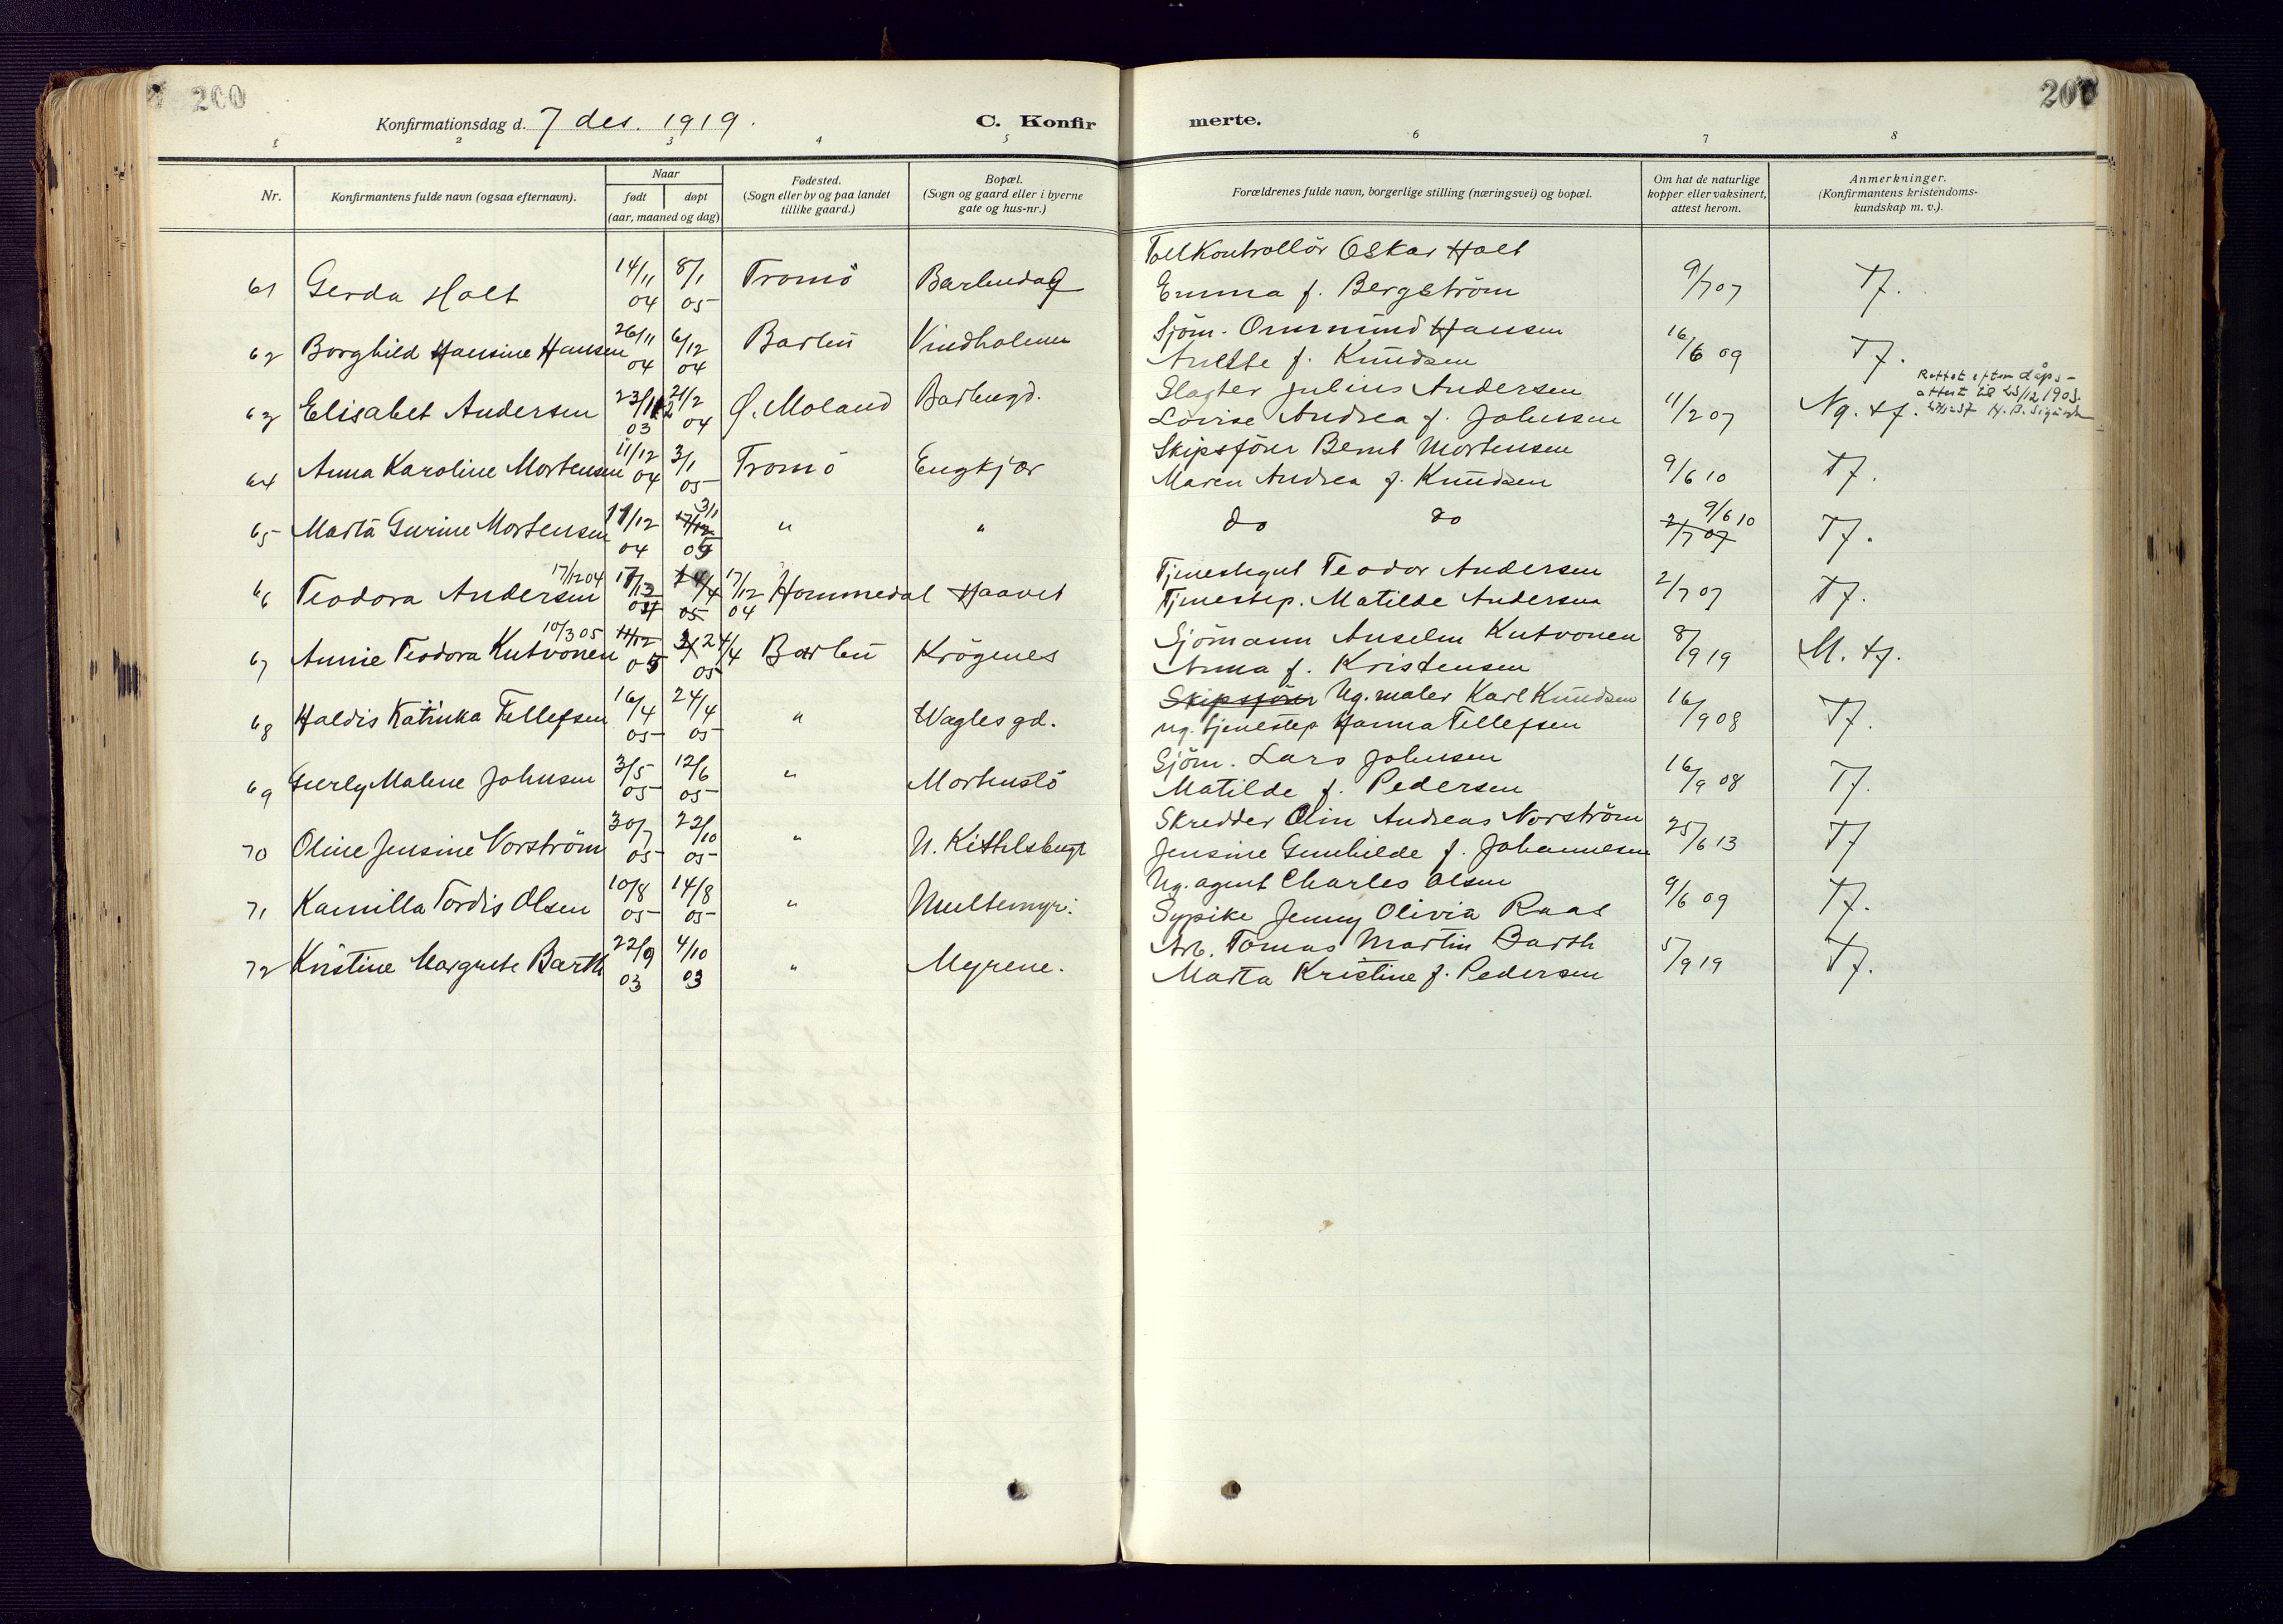 200
Konfirmationsdag d. 7 des. 1919.
C. Konfirmerte.
1 2 3 4 5 6 7 8
Nr.
Konfirmantens fulde navn (ogsaa efternavn).
Naar
født døpt
(aar, maaned og dag)
Fødested.
(Sogn eller by og paa landet
tillike gaard.)
Bopæl.
(Sogn og gaard eller i byerne
gate og hus-nr.)
Forældrenes fulde navn, borgerlige stilling (næringsvei) og bopæl.
Om hat de naturlige
kopper eller vaksinert,
attest herom.
Anmerkninger.
(Konfirmantens kristendoms-
kundskap m. v.).
Tollkontrollör Oskar Holt
61 Gerda Holt 14/11 04 8/1 05 Tromö Emma f. Bergström 9/7 07 Tf.
Sjöm. Hansen
62 Borghild Hansine Hansen 26/11 04 6/12 04 Barbu Vindholmen f. Knudsen 16/6 09 Tf.
Slagter Julius Andersen
63 Elisabet Andersen 23/12 03 21/2 04 Ø. Moland Barbugd. Lovise Andrea f. Johnsen 11/2 07 Ng. tf. Rettet efter dåps-
attest til 23/12 1903.
Skipsförer Bernt Mortensen
64 Anna Karoline Mortensen 11/12 04 3/1 05 Tromö Engkjær Maren Andrea f. Knudsen 9/6 10 Tf.
65 Marta Gurine Mortensen 11/12 04 17/12 3/1 05 " " do do 2/7 07 9/6 10 Tf.
Tjenestegut Teodor Andersen
66 Teodora Andersen 17/12 04 24/4 05 17/12 04 Hommedal Haavet Tjenestep. Matilde Andersen 2/7 07 Tf.
Sjömann Anselm Kutvonen
67 Annie Teodora Kutvonen 10/3 05 24/4 05 Barbu Krögenes Anna f. Kristensen 8/9 19 M. tf.
Skipsförer Ug. maler Karl Knudsen
68 Haldis Katinka Tellefsen 16/4 05 24/4 05 " Wagles gd. ug. tjenestep Hanna Tellefsen 16/9 08 Tf.
Sjöm. Lars Johnsen
69 Malene Johnsen 3/5 05 12/6 05 " Mortenslö Matilde f. Pedersen 16/9 08 Tf.
Skredder Andreas Norström
70 Oline Jensine Norström 30/7 05 22/10 05 " N. Kittelsbugt Jensine Gunhilde f. Johannesen 25/6 13 Tf
Ug. agent Charles Olsen
71 Kamilla Tordis Olsen 10/8 05 14/8 05 " Multemyr. Sypike Jenny Olivia Raas 9/6 09 Tf.
Arb. Tomas Martin Barth
72 Kristine Margrete Barth 22/9 03 4/10 03 " Myrene. Marta Kristine f. Pedersen 5/9 19 Tf.